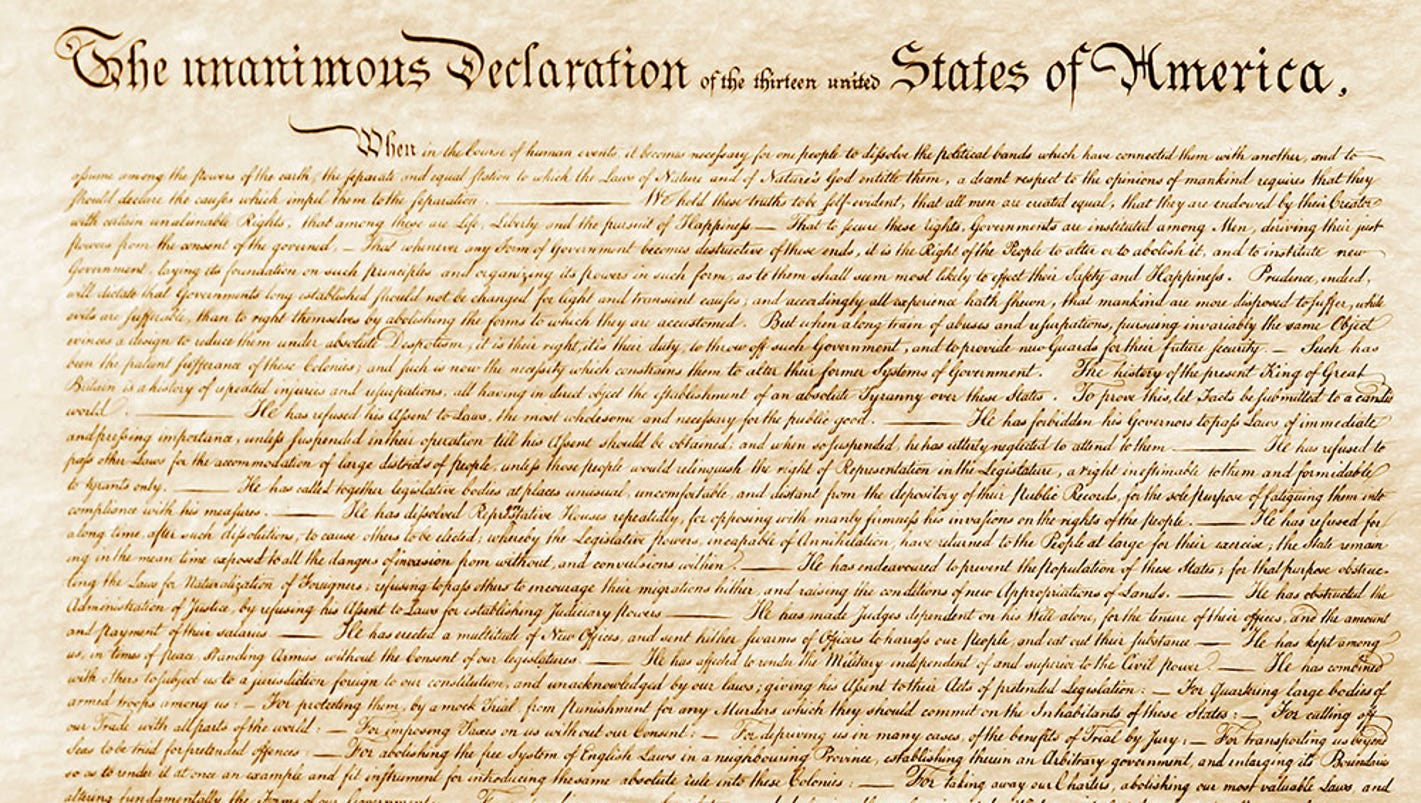 The unanimous Declaration of the thirteen united States of America,
When in the Course of human events, it becomes necessary for one people to dissolve the political bands which have connected them with another, and to
assume among the powers of the earth, the separate and equal station to which the Laws of Nature and of Nature's God entitle them, a decent respect to the opinions of mankind requires that they
should declare the causes which impel them to the separation. ——— We hold these truths to be self-evident, that all men are created equal, that they are endowed by their Creator
with certain unalienable Rights, that among these are Life, Liberty and the pursuit of Happiness.— That to secure these rights, Governments are instituted among Men, deriving their just
powers from the consent of the governed, — That whenever any Form of Government becomes destructive of these ends, it is the Right of the People to alter or to abolish it, and to institute new
Government, laying its foundation on such principles and organizing its powers in such form, as to them shall seem most likely to effect their Safety and Happiness. Prudence, indeed,
will dictate that Governments long established should not be changed for light and transient causes; and accordingly all experience hath shewn, that mankind are more disposed to suffer, while
evils are sufferable, than to right themselves by abolishing the forms to which they are accustomed. But when a long train of abuses and usurpations, pursuing invariably the same Object
evinces a design to reduce them under absolute Despotism, it is their right, it is their duty, to throw off such Government, and to provide new Guards for their future security. — Such has
been the patient sufferance of these Colonies; and such is now the necessity which constrains them to alter their former Systems of Government. The history of the present King of Great
Britain is a history of repeated injuries and usurpations, all having in direct object the establishment of an absolute Tyranny over these States. To prove this, let Facts be submitted to a candid
world. ——— He has refused his Assent to Laws, the most wholesome and necessary for the public good. ——— He has forbidden his Governors to pass Laws of immediate
and pressing importance, unless suspended in their operation till his Assent should be obtained; and when so suspended, he has utterly neglected to attend to them ——— He has refused to
pass other Laws for the accommodation of large districts of people, unless those people would relinquish the right of Representation in the Legislature, a right inestimable to them and formidable
to tyrants only. ——— He has called together legislative bodies at places unusual, uncomfortable, and distant from the depository of their Public Records, for the sole purpose of fatiguing them into
compliance with his measures. ——— He has dissolved Representative Houses repeatedly, for opposing with manly firmness his invasions on the rights of the people. ——— He has refused for
a long time, after such dissolutions, to cause others to be elected; whereby the Legislative powers, incapable of Annihilation, have returned to the People at large for their exercise; the State remain
ing in the mean time exposed to all the dangers of invasion from without, and convulsions within. ——— He has endeavoured to prevent the population of these States; for that purpose obstruc-
ting the Laws for Naturalization of Foreigners; refusing to pass others to encourage their migrations hither, and raising the conditions of new Appropriations of Lands. ——— He has obstructed the
Administration of Justice, by refusing his Assent to Laws for establishing Judiciary powers ——— He has made Judges dependent on his Will alone, for the tenure of their offices, and the amount
and payment of their salaries ——— He has erected a multitude of New Offices, and sent hither swarms of Officers to harrass our people, and eat out their substance — He has kept among
us, in times of peace, Standing Armies without the Consent of our legislatures. ——— He has affected to render the Military independent of and superior to the Civil power. ——— He has combined
with others to subject us to a jurisdiction foreign to our constitution, and unacknowledged by our laws; giving his Assent to their Acts of pretended Legislation: — For Quartering large bodies of
armed troops among us: — For protecting them, by a mock Trial, from punishment for any Murders which they should commit on the Inhabitants of these States: — For cutting off
our Trade with all parts of the world: — For imposing Taxes on us without our Consent: — For depriving us in many cases, of the benefits of Trial by Jury: — For transporting us beyond
Seas to be tried for pretended offences: — For abolishing the free System of English Laws in a neighbouring Province, establishing therein an Arbitrary government, and enlarging its Boundaries
so as to render it at once an example and fit instrument for introducing the same absolute rule into these Colonies: — For taking away our Charters, abolishing our most valuable Laws, and
altering fundamentally the Forms of our Governments: